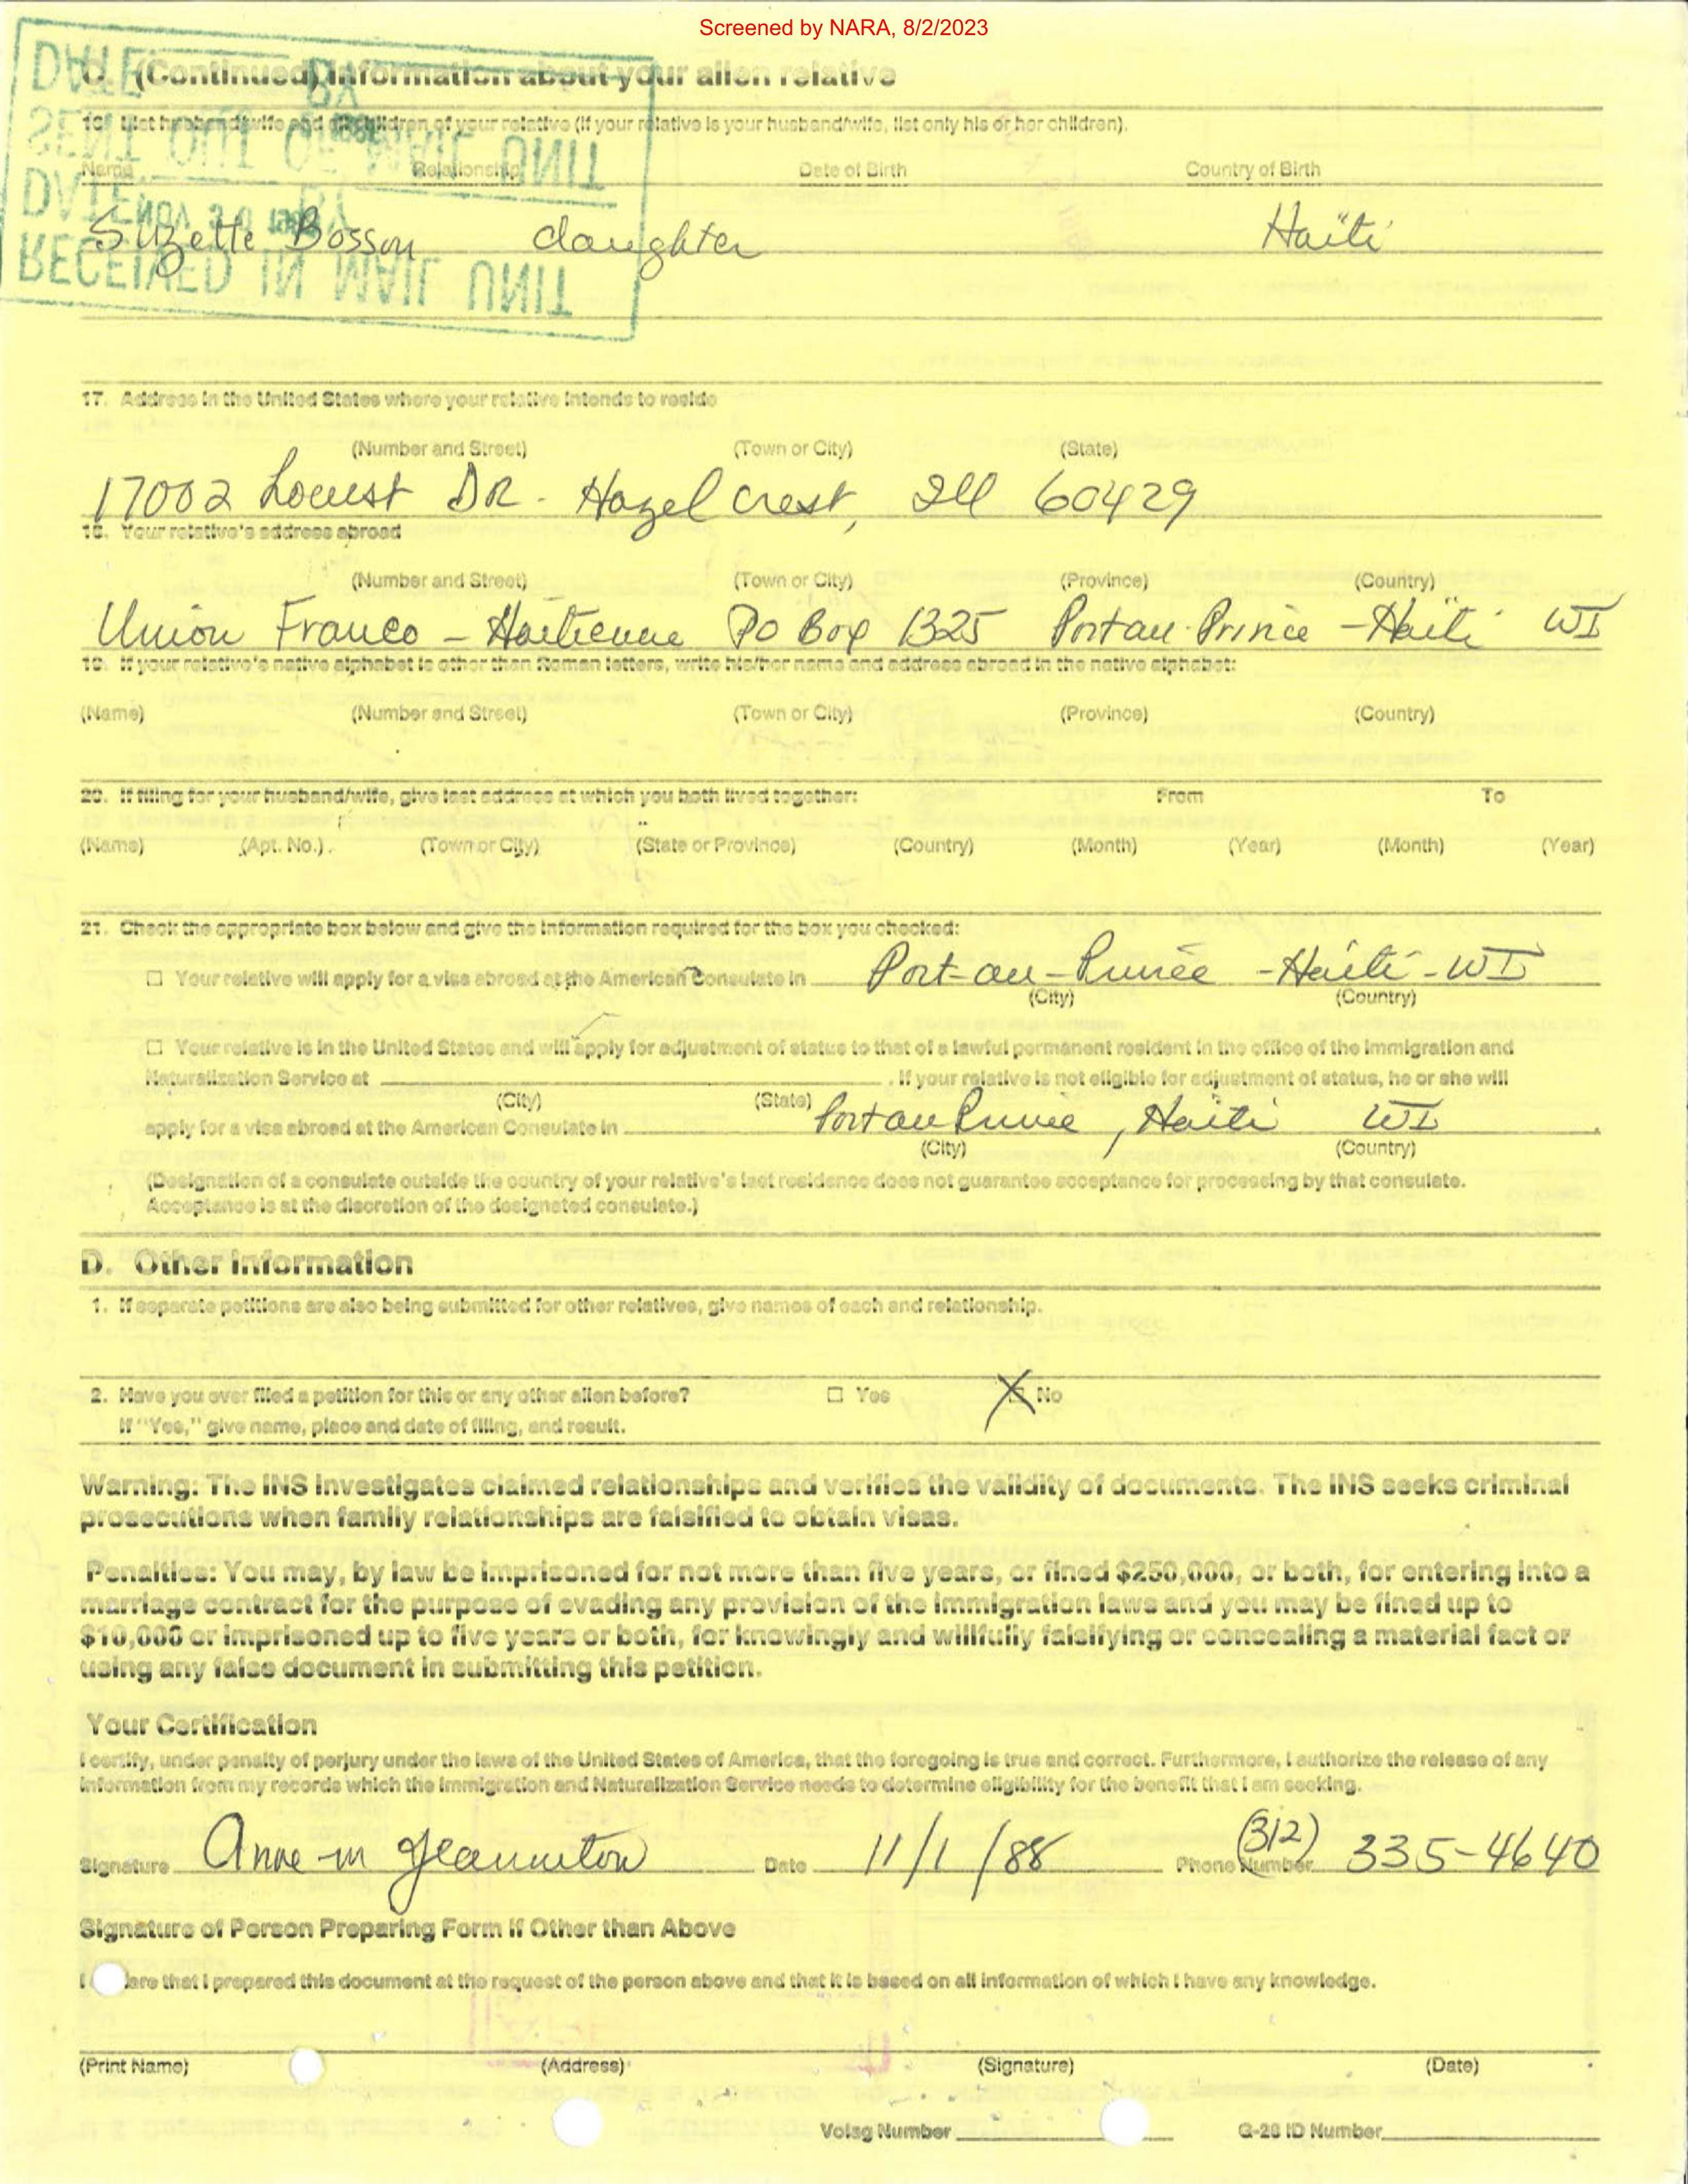 Screened by NARA, 8/2/2023
C. (Continued) Information about your alien relative
16. List husband/wife and all children of your relative (if your relative is your husband/wife, list only his or her children).
Name Relationship Date of Birth Country of Birth
Suzette Bosson daughter Haïti
RECEIVED IN MAIL UNIT
DATE NOV 30 BY
SENT OUT OF MAIL UNIT
DATE BY
17. Address in the United States where your relative intends to reside
(Number and Street) (Town or City) (State)
17002 Locust DR - Hazel crest, Ill 60429
18. Your relative's address abroad
(Number and Street) (Town or City) (Province) (Country)
Union Franco - Haïtienne PO Box 1325 Port au-Prince - Haïti WI
19. If your relative's native alphabet is other than Roman letters, write his/her name and address abroad in the native alphabet:
(Name) (Number and Street) (Town or City) (Province) (Country)
20. If filing for your husband/wife, give last address at which you both lived together: From To
(Name) (Apt. No.) (Town or City) (State or Province) (Country) (Month) (Year) (Month) (Year)
21. Check the appropriate box below and give the information required for the box you checked:
☐ Your relative will apply for a visa abroad at the American Consulate in Port-au-Prince - Haïti - WI
(City) (Country)
☐ Your relative is in the United States and will apply for adjustment of status to that of a lawful permanent resident in the office of the Immigration and
Naturalization Service at . If your relative is not eligible for adjustment of status, he or she will
(City) (State)
apply for a visa abroad at the American Consulate in Port au Prince, Haïti WI .
(City) (Country)
(Designation of a consulate outside the country of your relative's last residence does not guarantee acceptance for processing by that consulate.
Acceptance is at the discretion of the designated consulate.)
D. Other Information
1. If separate petitions are also being submitted for other relatives, give names of each and relationship.
2. Have you ever filed a petition for this or any other alien before? ☐ Yes ☒ No
If "Yes," give name, place and date of filing, and result.
Warning: The INS investigates claimed relationships and verifies the validity of documents. The INS seeks criminal
prosecutions when family relationships are falsified to obtain visas.
Penalties: You may, by law be imprisoned for not more than five years, or fined $250,000, or both, for entering into a
marriage contract for the purpose of evading any provision of the immigration laws and you may be fined up to
$10,000 or imprisoned up to five years or both, for knowingly and willfully falsifying or concealing a material fact or
using any false document in submitting this petition.
Your Certification
I certify, under penalty of perjury under the laws of the United States of America, that the foregoing is true and correct. Furthermore, I authorize the release of any
information from my records which the Immigration and Naturalization Service needs to determine eligibility for the benefit that I am seeking.
Signature Anne m Jeanniton Date 11/1/88 Phone Number (312) 335-4640
Signature of Person Preparing Form if Other than Above
I are that I prepared this document at the request of the person above and that it is based on all information of which I have any knowledge.
(Print Name) (Address) (Signature) (Date)
Volag Number G-28 ID Number